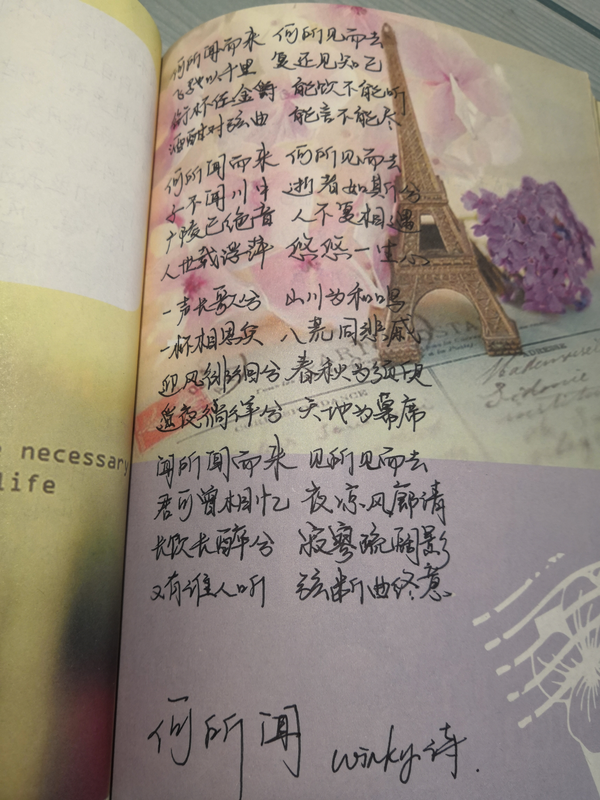 何所闻而来 何所见而去
飞驰以千里 复还见知己
衔杯任金爵 能饮不能听
酒酣时弦曲 能言不能尽
何所闻而来 何所见而去
子不闻川中 逝者如斯兮
广陵已绝音 人不复相遇
人世载浮萍 悠悠一生
一声长歌兮 山川为和鸣
一杯相思矣 八荒同悲戚
迎风徘徊兮 春秋为须臾
遥夜徜徉兮 天地为幕席
闻所闻而来 见所见而去
君可曾相忆 夜凉风廊清
长饮长醉兮 寂寥疏阔影
又有谁人听 弦断曲终意
何所闻 winky.诗.
necessary
life
ADRESSE